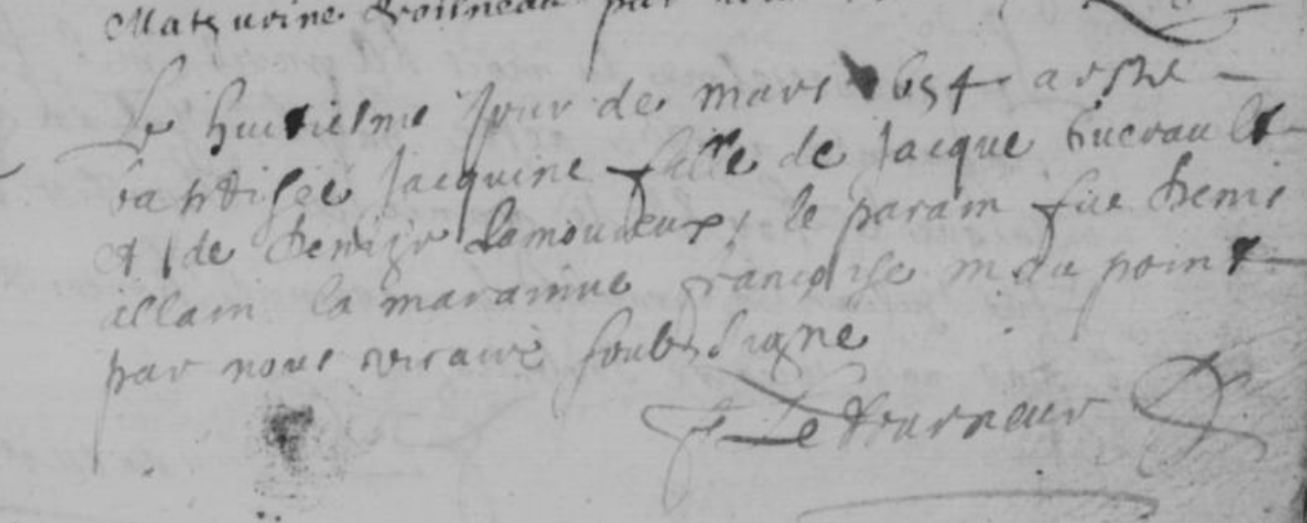 Mathurine par
Le huitiesme jour de mars 1654 a este
baptisee Jacquine fille de Jacque huerault
et de Lamoureux le parain fut Denis
allain la marainne françoise du point
par nous vicaire soubs signe
Le Tourneur